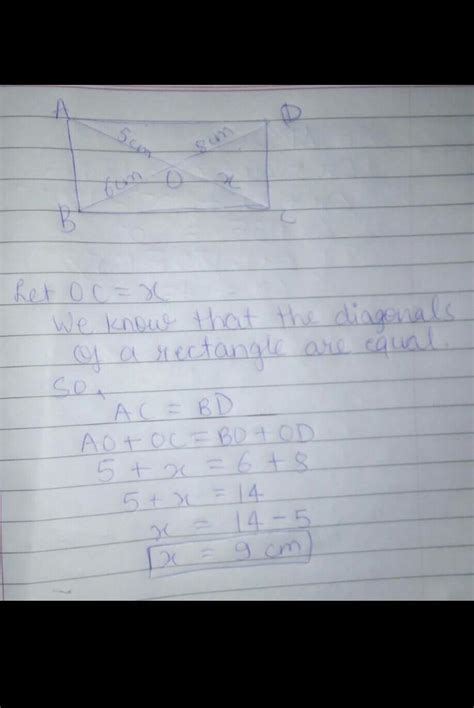 A D
5cm 8cm
6cm O x
B C
Let OC = x
We know that the diagonals
of a rectangle are equal.
So,
AC = BD
AO + OC = BO + OD
5 + x = 6 + 8
5 + x = 14
x = 14 - 5
x = 9 cm